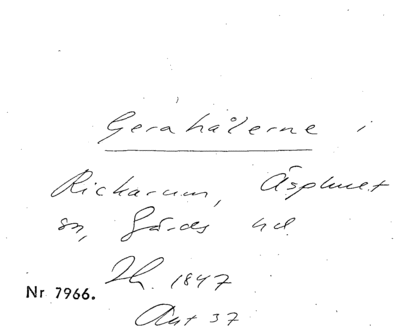 Gerahålerne i
Rickarum, Äsphult
sn, Gärds hd.
Th. 1847
Nr 7966.
Ant 37